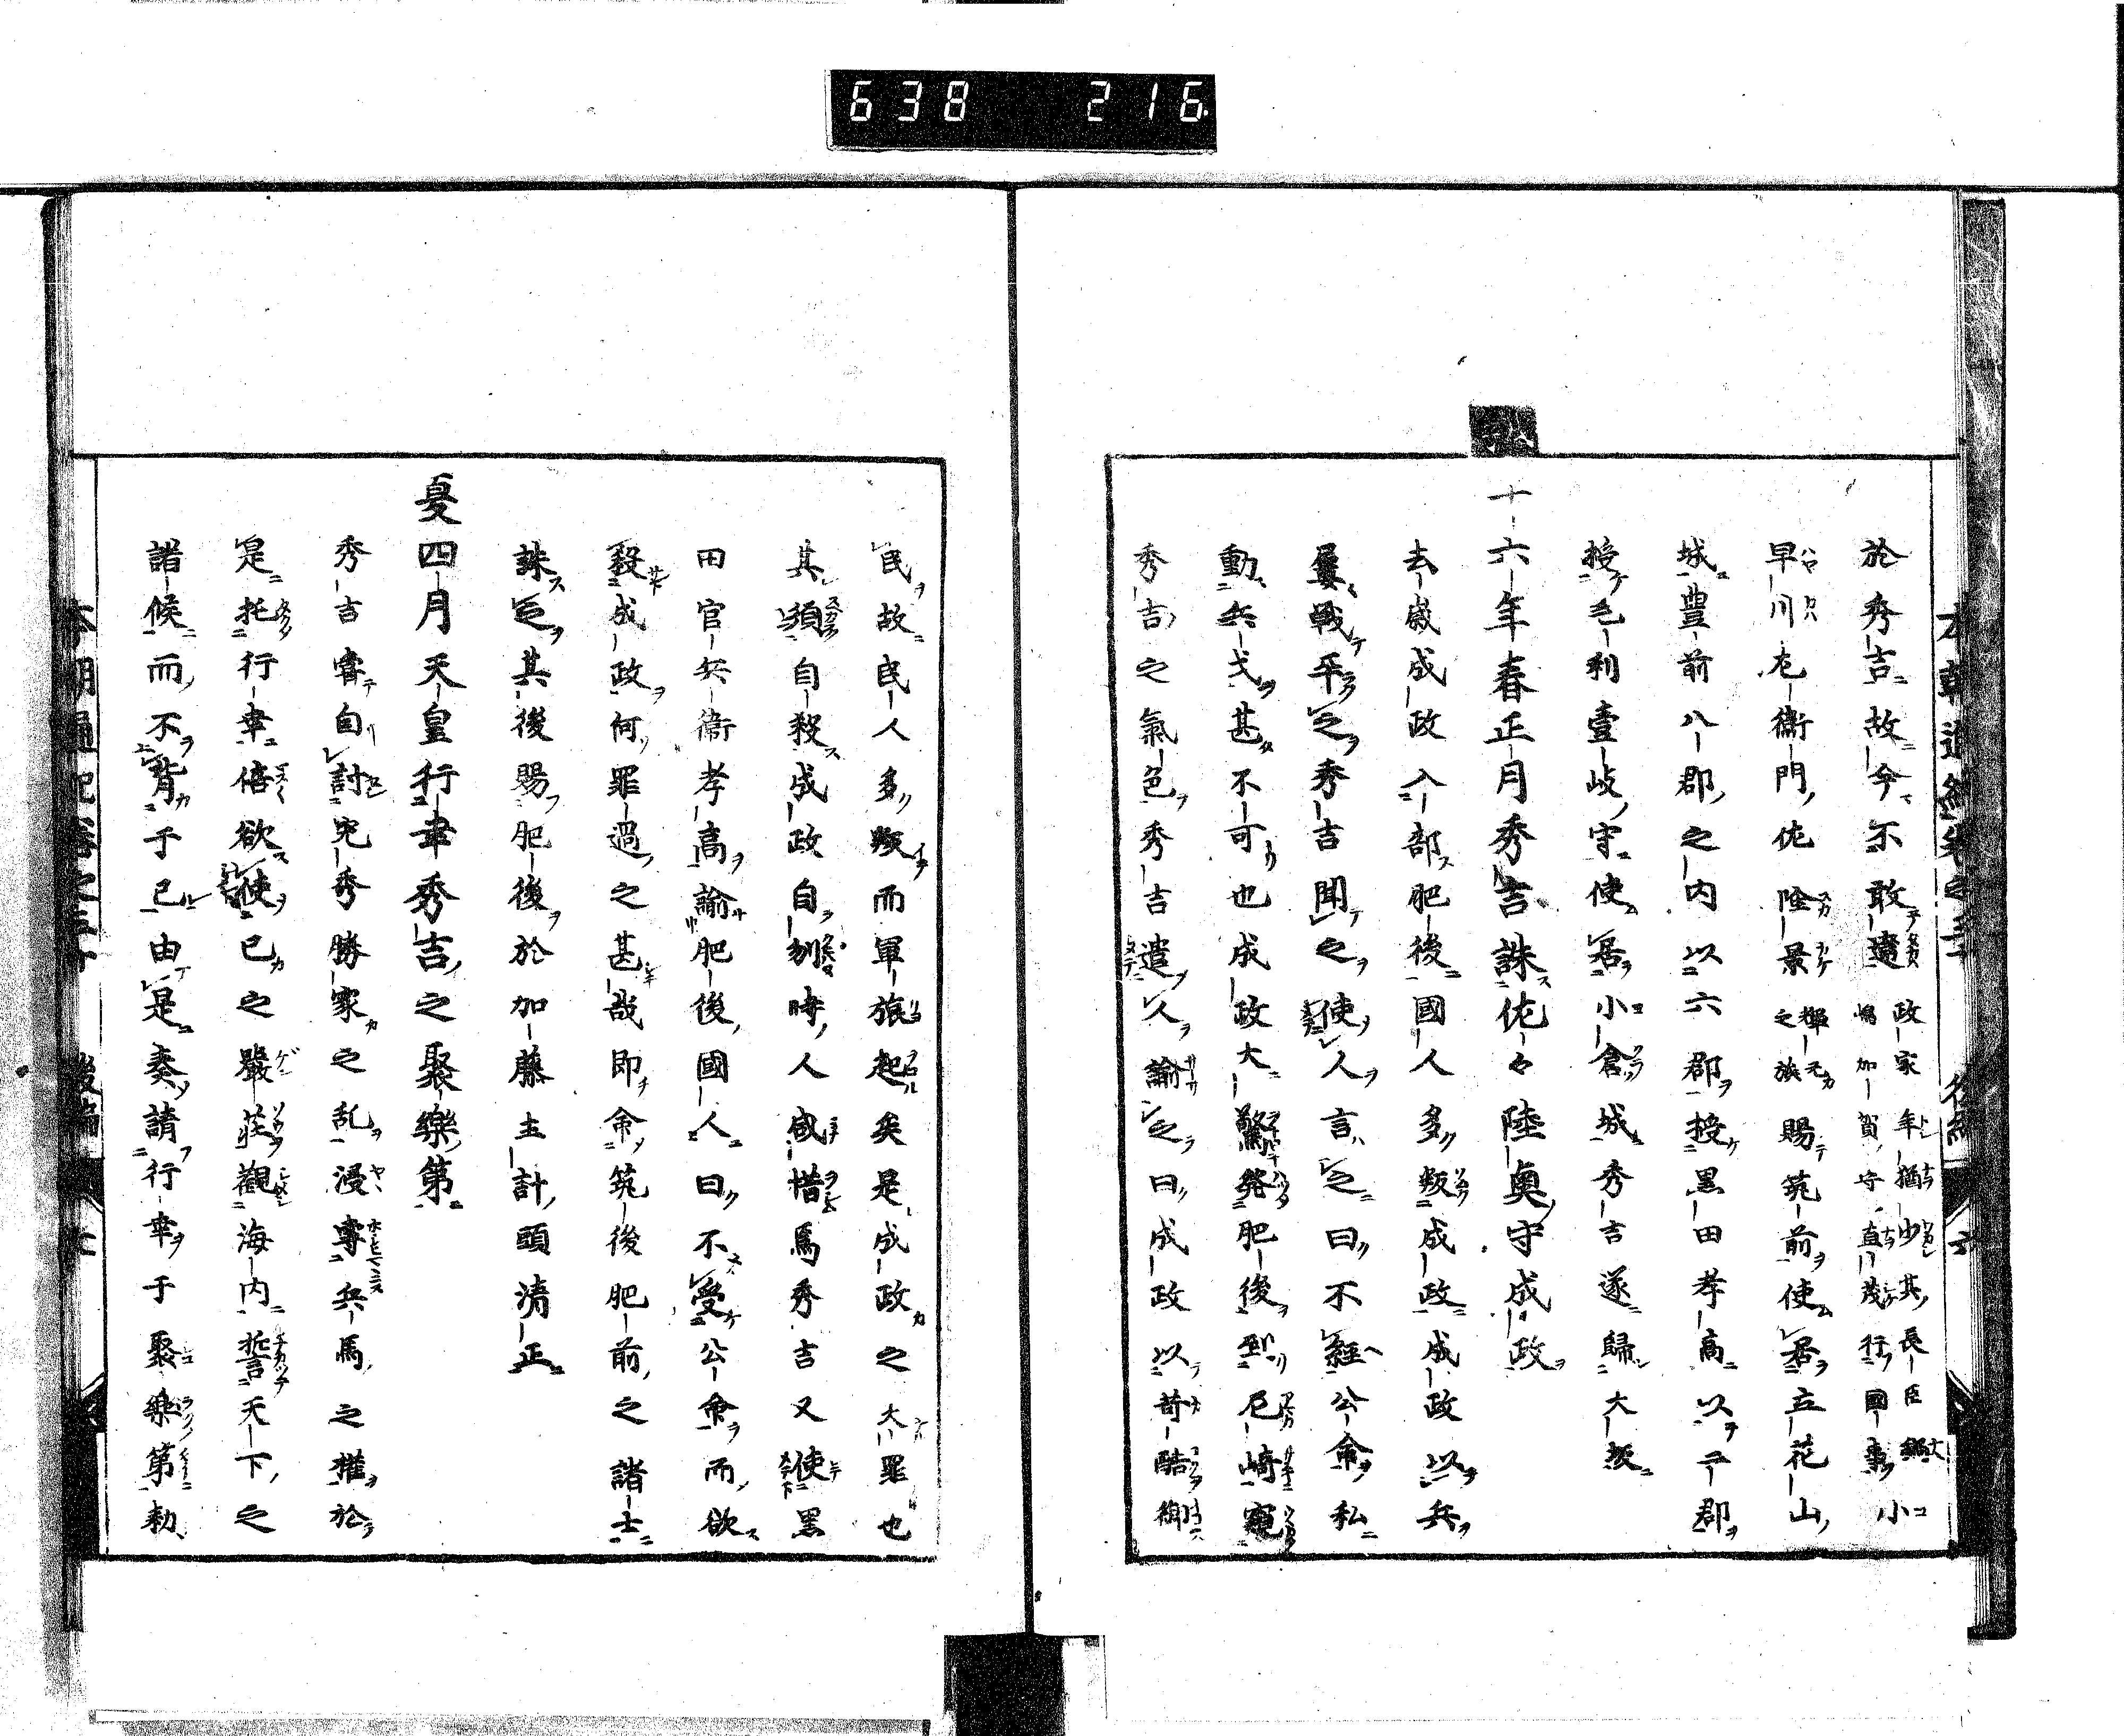 638 216
於秀吉故今不敢違政家年猶少其長臣鍋
嶋加賀守直茂行國事小
早川左衞門佐隆景輝元
之族賜筑前使居立花山
城豊前八郡之内以六郡授黒田孝高以二郡
授毛利壹岐守使居小倉城秀吉遂歸大坂
十六年春正月秀吉誅佐々陸奥守成政
去歳成政入部肥後國人多叛成政成政以兵
屡戰平之秀吉聞之使人言之曰不經公命私
動兵戈甚不可也成政大驚發肥後到尼崎窺
秀吉之氣色秀吉遣人諭之曰成政以苛酷御
民故民人多叛而軍旅起矣是成政之大罪也
其須自殺成政自刎時人咸惜焉秀吉又使黒
田官兵衞孝高諭肥後國人曰不受公命而欲
殺成政何罪過之甚哉即命筑後肥前之諸士
誅之其後賜肥後於加藤主計頭清正
夏四月天皇行幸秀吉之聚樂第
秀吉嘗自討兇秀勝家之乱浸專兵馬之權於
是托行幸倍欲使己之嚴莊觀海内誓天下之
諸候而不背于己由是奏請行幸于聚樂第勅